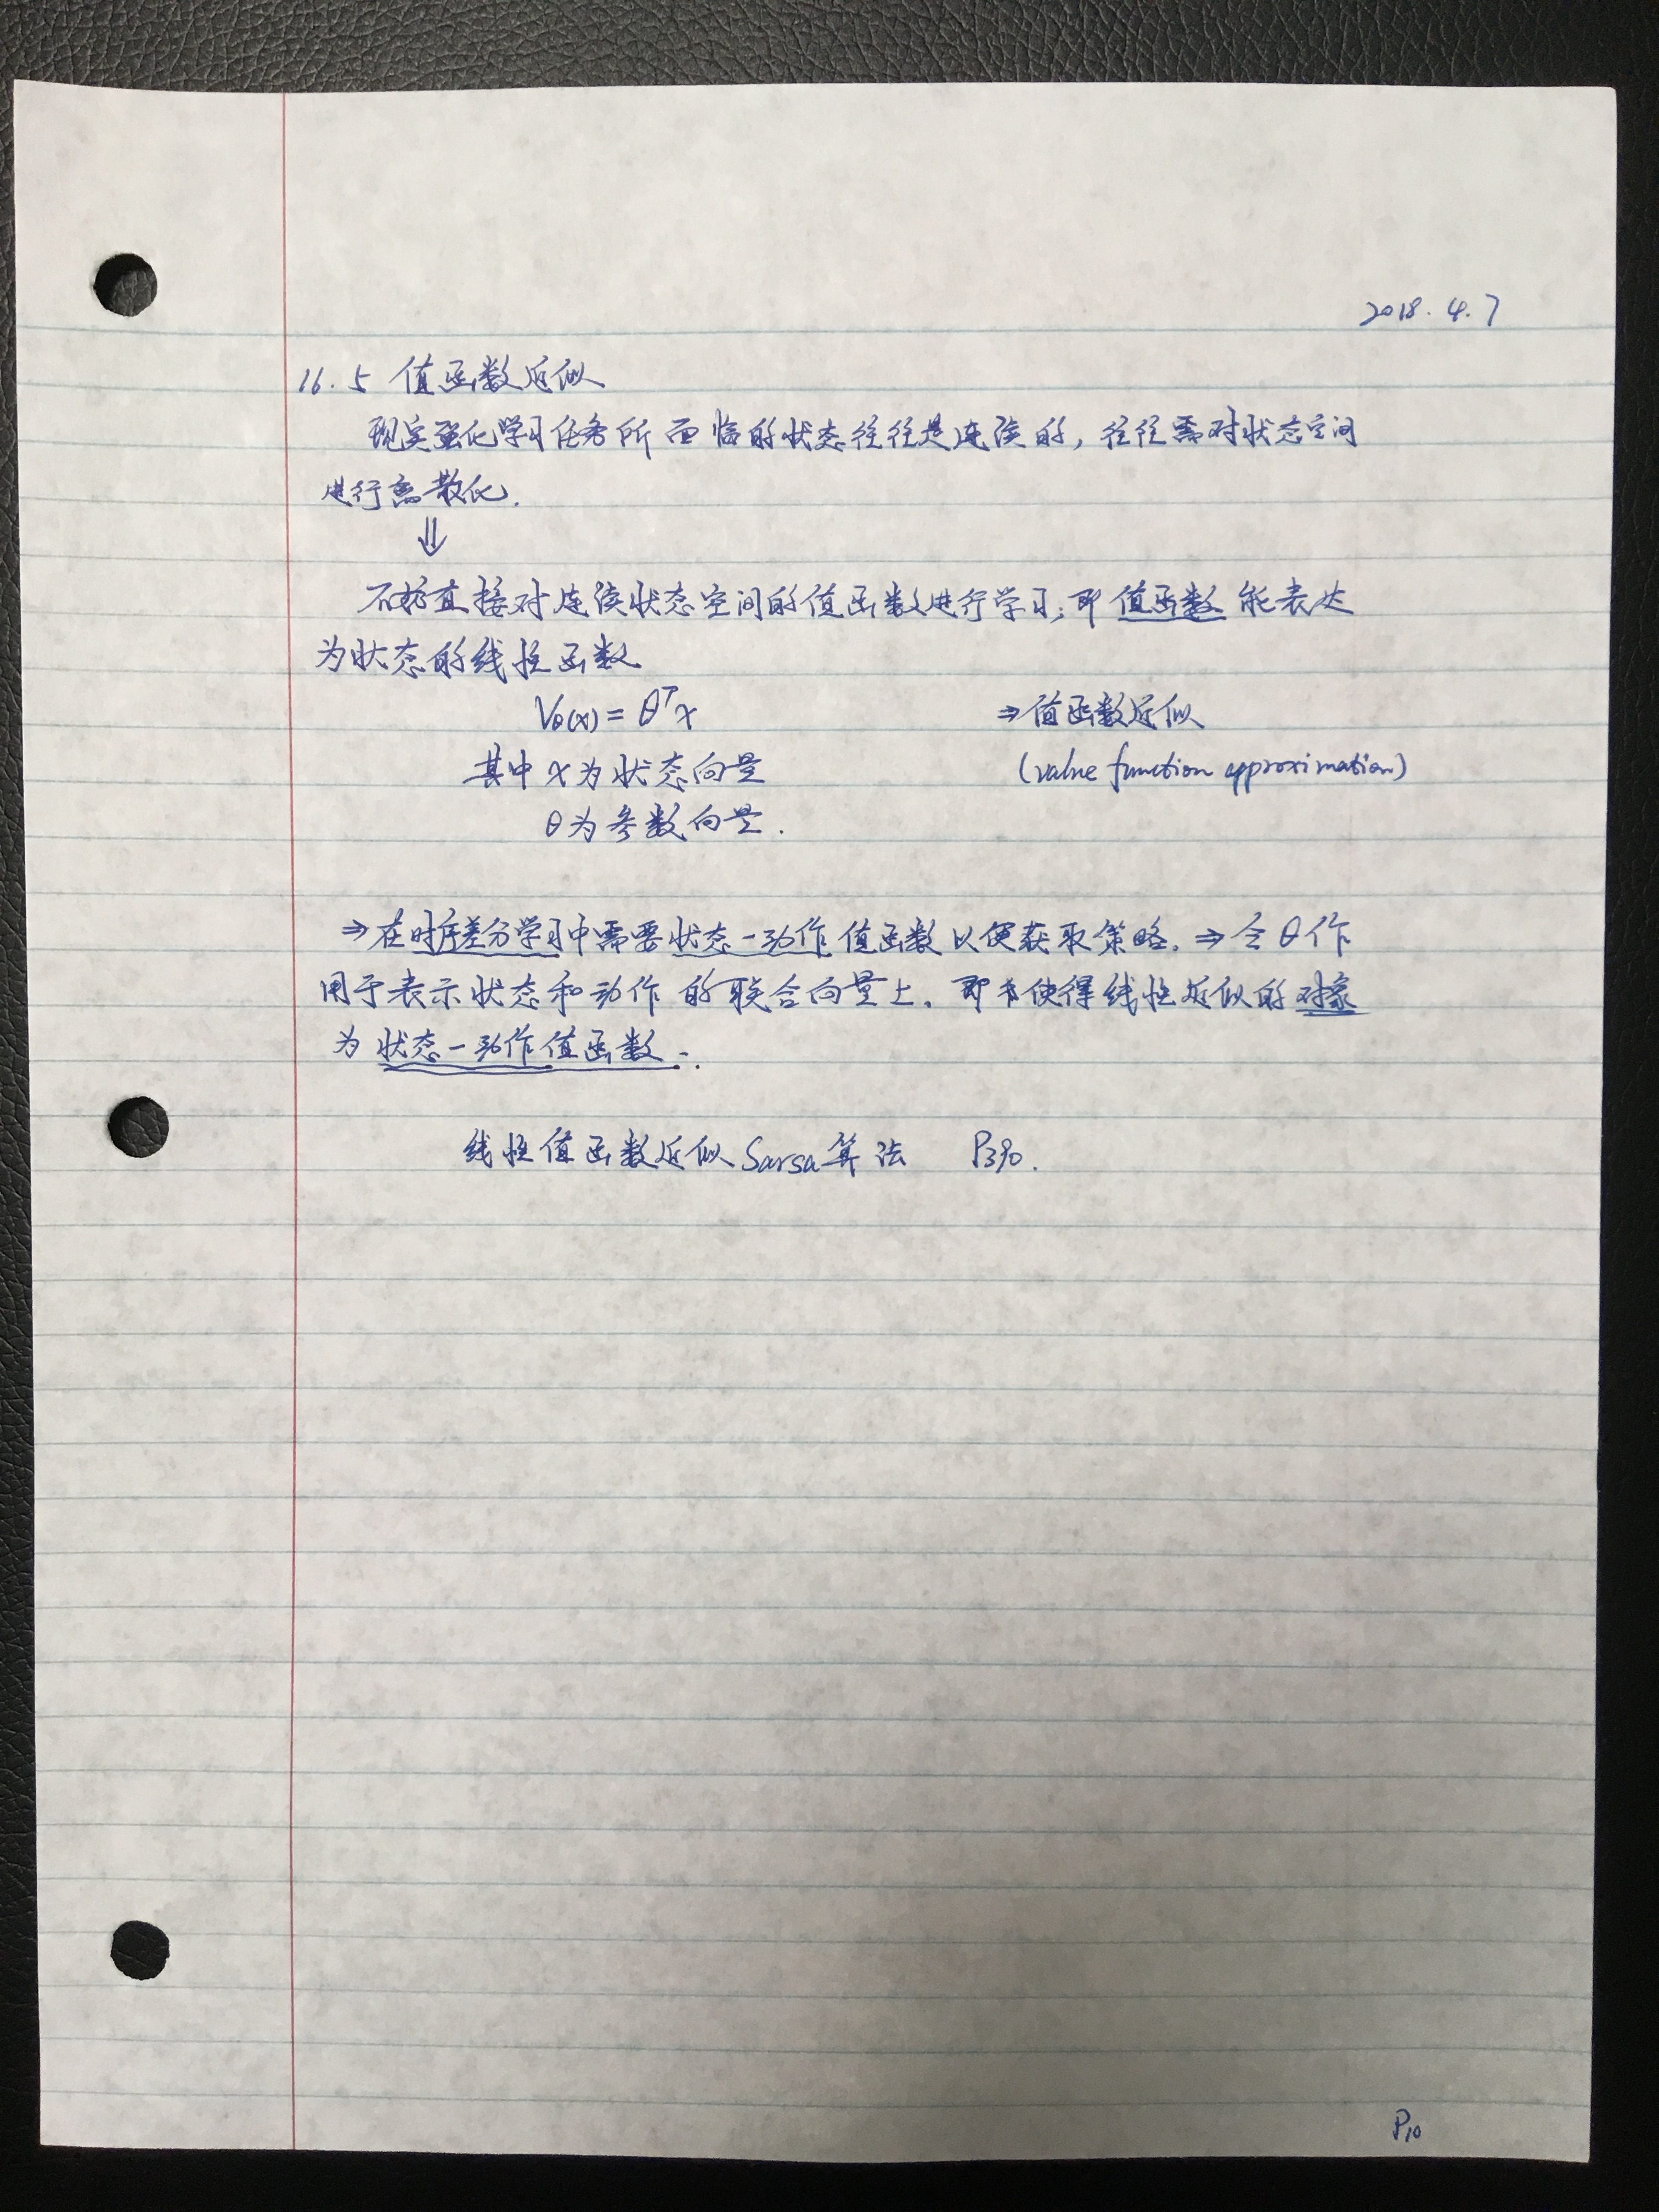 2018. 4. 7
16.5 值函数近似
现实强化学习任务所面临的状态往往是连续的, 往往需对状态空间
进行离散化.
⇓
不妨直接对连续状态空间的值函数进行学习; 即值函数能表达
为状态的线性函数
V_θ(x) = θ^T x ⇒值函数近似
其中 x为状态向量 (value function approximation)
θ为参数向量.
⇒在时序差分学习中需要状态-动作值函数以便获取策略. ⇒ 令θ作
用于表示状态和动作的联合向量上. 即 使得线性近似的对象
为状态-动作值函数.
线性值函数近似Sarsa算法 P390.
P10